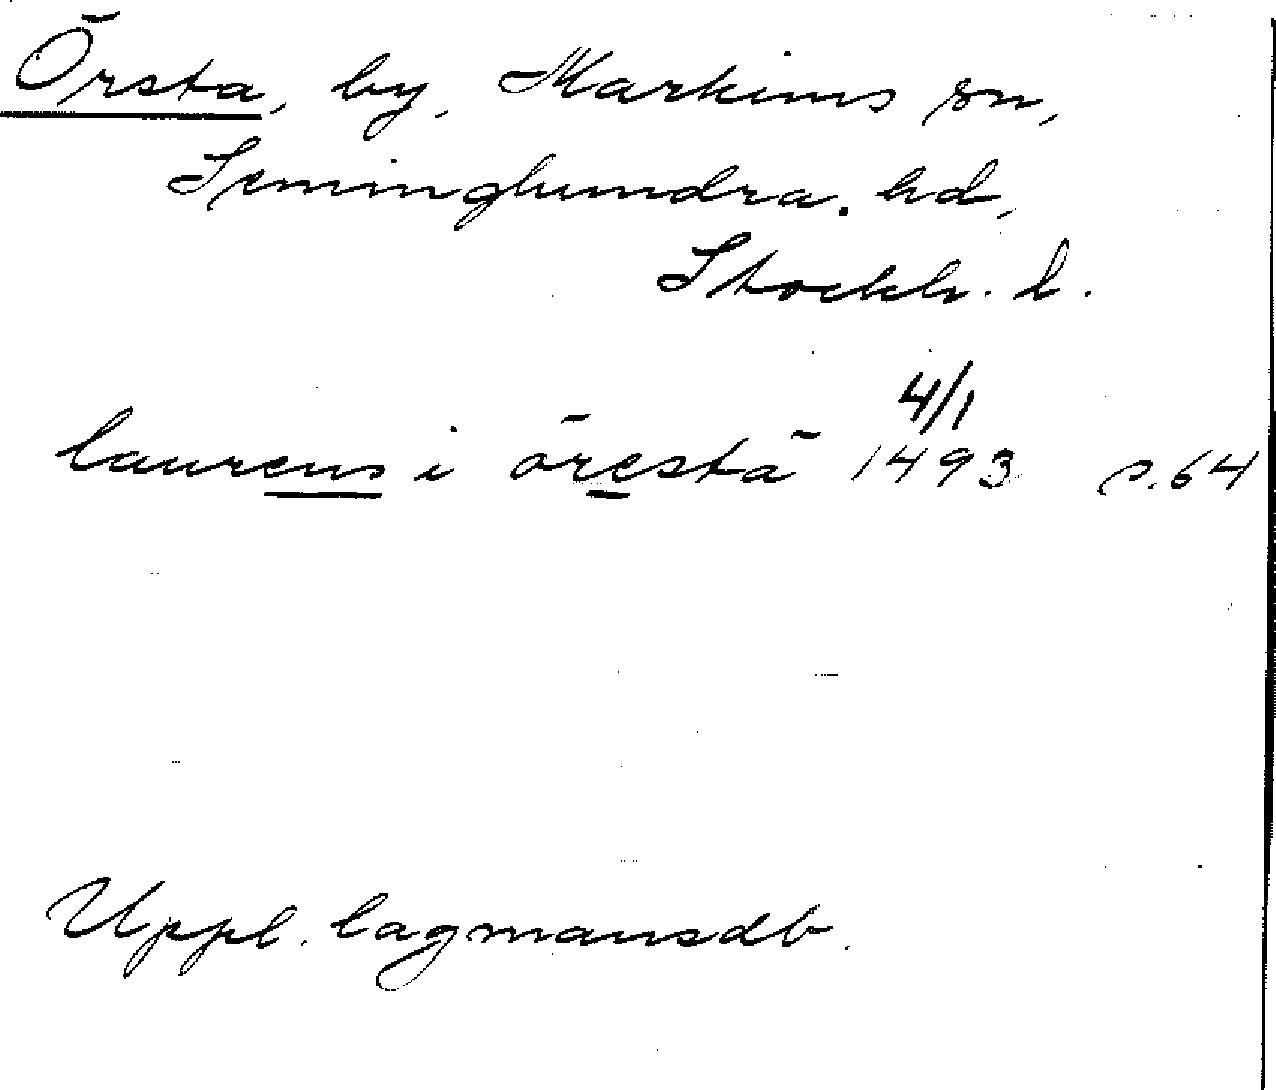 Örsta, by, Markims sn,
Seminghundra. hd,
Stockh. l.
4/1
laurens i örestä 1493 s.64
Uppl. lagmansdb.